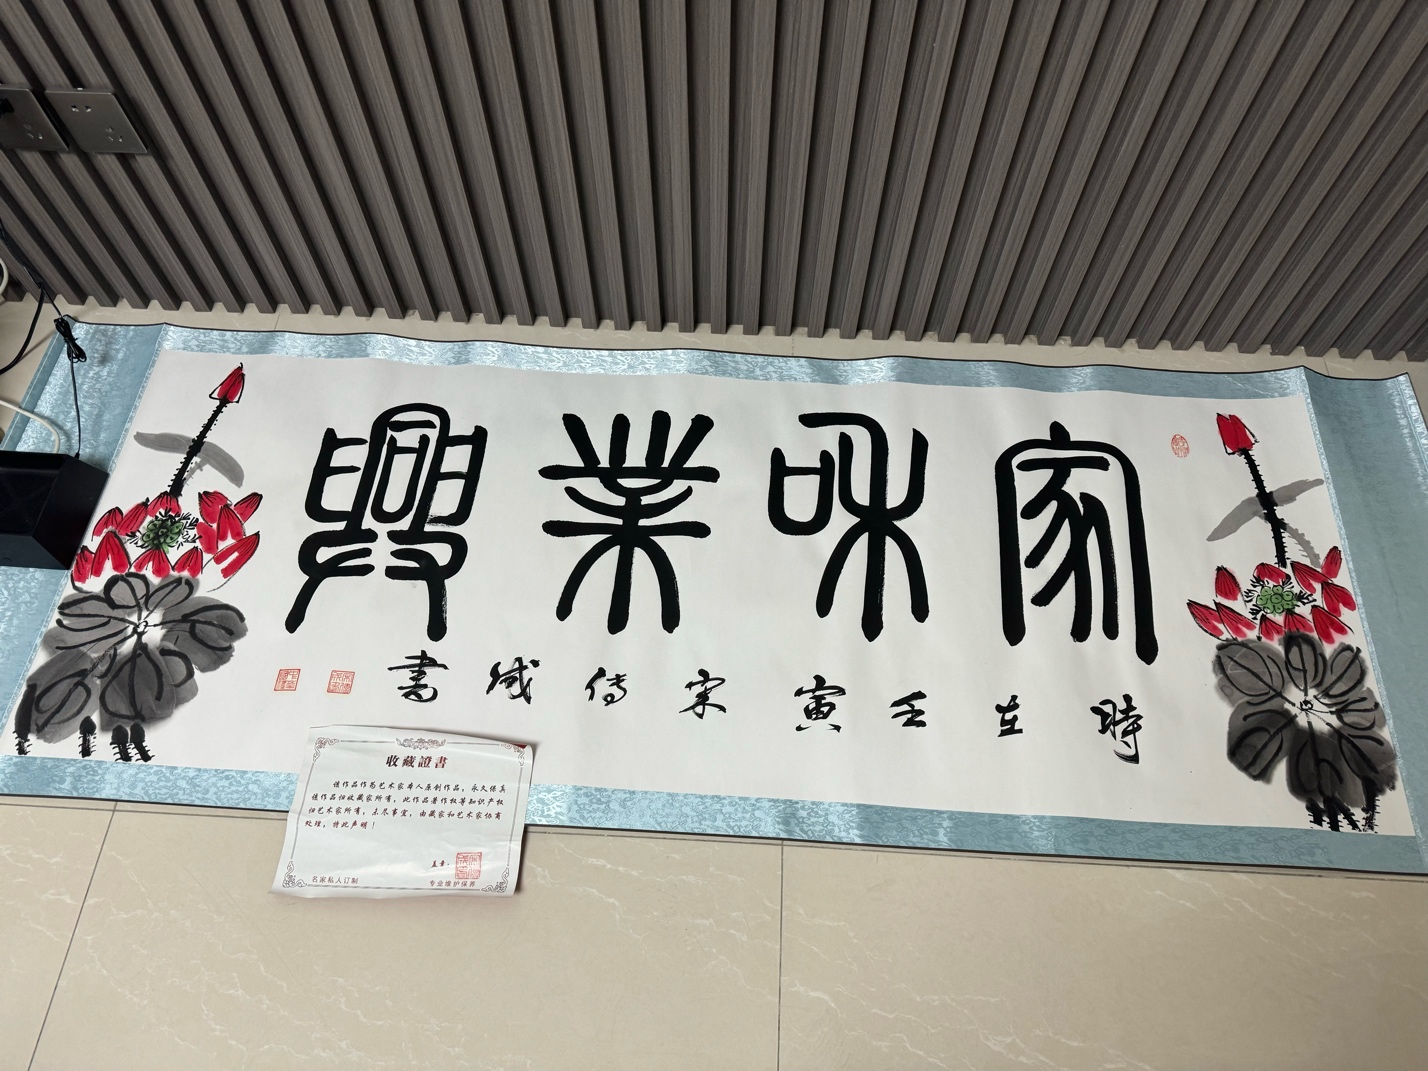 家和業興
時在壬寅宋傳書
收藏證書
该作品作为艺术家本人原创作品，永久保真
该作品归收藏家所有，此作品著作权等知识产权
归艺术家所有，未尽事宜，由藏家和艺术家协商
处理，特此声明！
盖章：
名家私人订制 专业维护保养